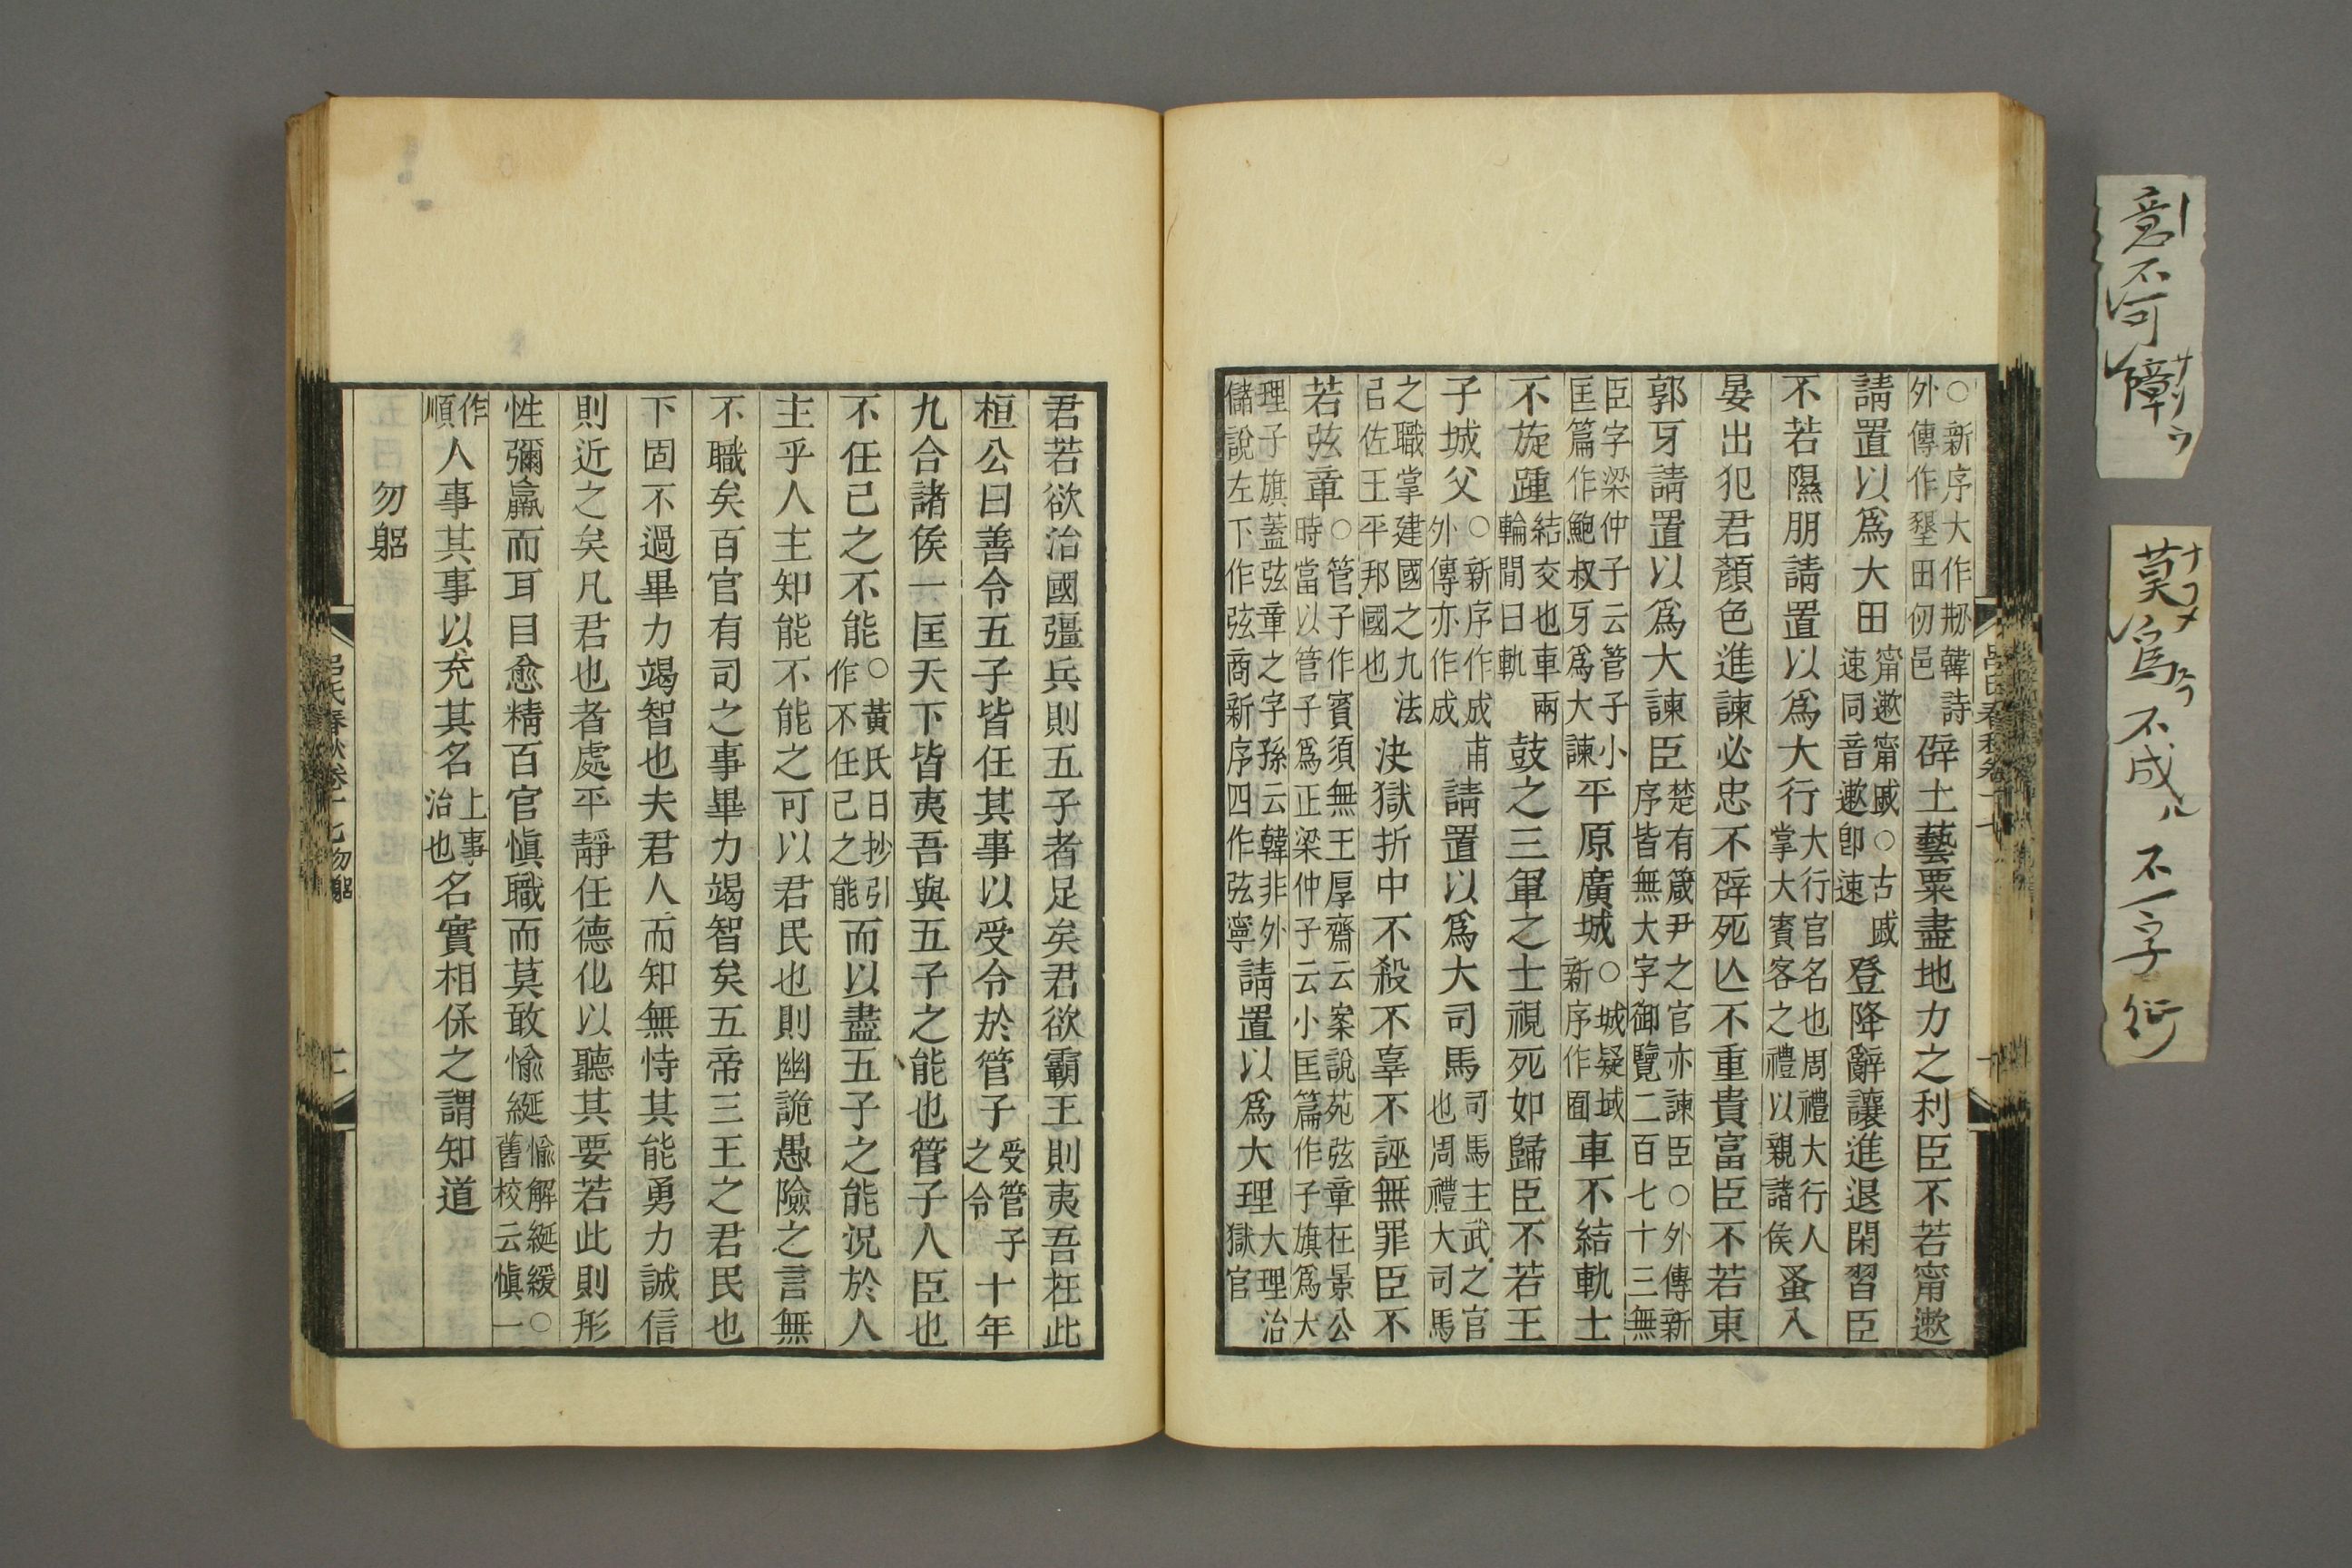 ○新序大作剏韓詩外傳作墾田仞邑辟土藝粟盡地力之利臣不若甯遬
請置以爲大田甯遬甯戚○古戚速同音遬卽速登降辭讓進退閑習臣
不若隰朋請置以爲大行大行官名也周禮大行人掌大賓客之禮以親諸侯蚤入
晏出犯君顏色進諫必忠不辟死亾不重貴富臣不若東
郭牙請置以爲大諫臣楚有箴尹之官亦諫臣○外傳新序皆無大字御覽二百七十三無
臣字梁仲子云管子小匡篇作鮑叔牙爲大諫平原廣城○城疑域新序作囿車不結軌士
不旋踵結交也車兩輪閒曰軌鼓之三軍之士視死如歸臣不若王
子城父○新序作成甫外傳亦作成請置以爲大司馬司馬主武之官也周禮大司馬
之職掌建國之九法㠯佐王平邦國也決獄折中不殺不辜不誣無罪臣不
若弦章○管子作賓須無王厚齋云案說苑弦章在景公時當以管子爲正梁仲子云小匡篇作子旗爲大
理子旗蓋弦章之字孫云韓非外儲說左下作弦商新序四作弦寧請置以爲大理大理治獄官
君若欲治國彊兵則五子者足矣君欲霸王則夷吾在此
桓公曰善令五子皆任其事以受令於管子受管子之令十年
九合諸侯一匡天下皆夷吾與五子之能也管子人臣也
不任己之不能○黃氏日抄引作不任己之能而以盡五子之能況於人
主乎人主知能不能之可以君民也則幽詭愚險之言無
不職矣百官有司之事畢力竭智矣五帝三王之君民也
下固不過畢力竭智也夫君人而知無恃其能勇力誠信
則近之矣凡君也者處平靜任德化以聽其要若此則形
性彌羸而耳目愈精百官愼職而莫敢愉綖愉解綖緩○舊校云愼一
作順人事其事以充其名上事治也名實相保之謂知道
勿躳
呂氏春秋卷十七勿躳
意不可障サソウ
莫爲不成ル不一字衍